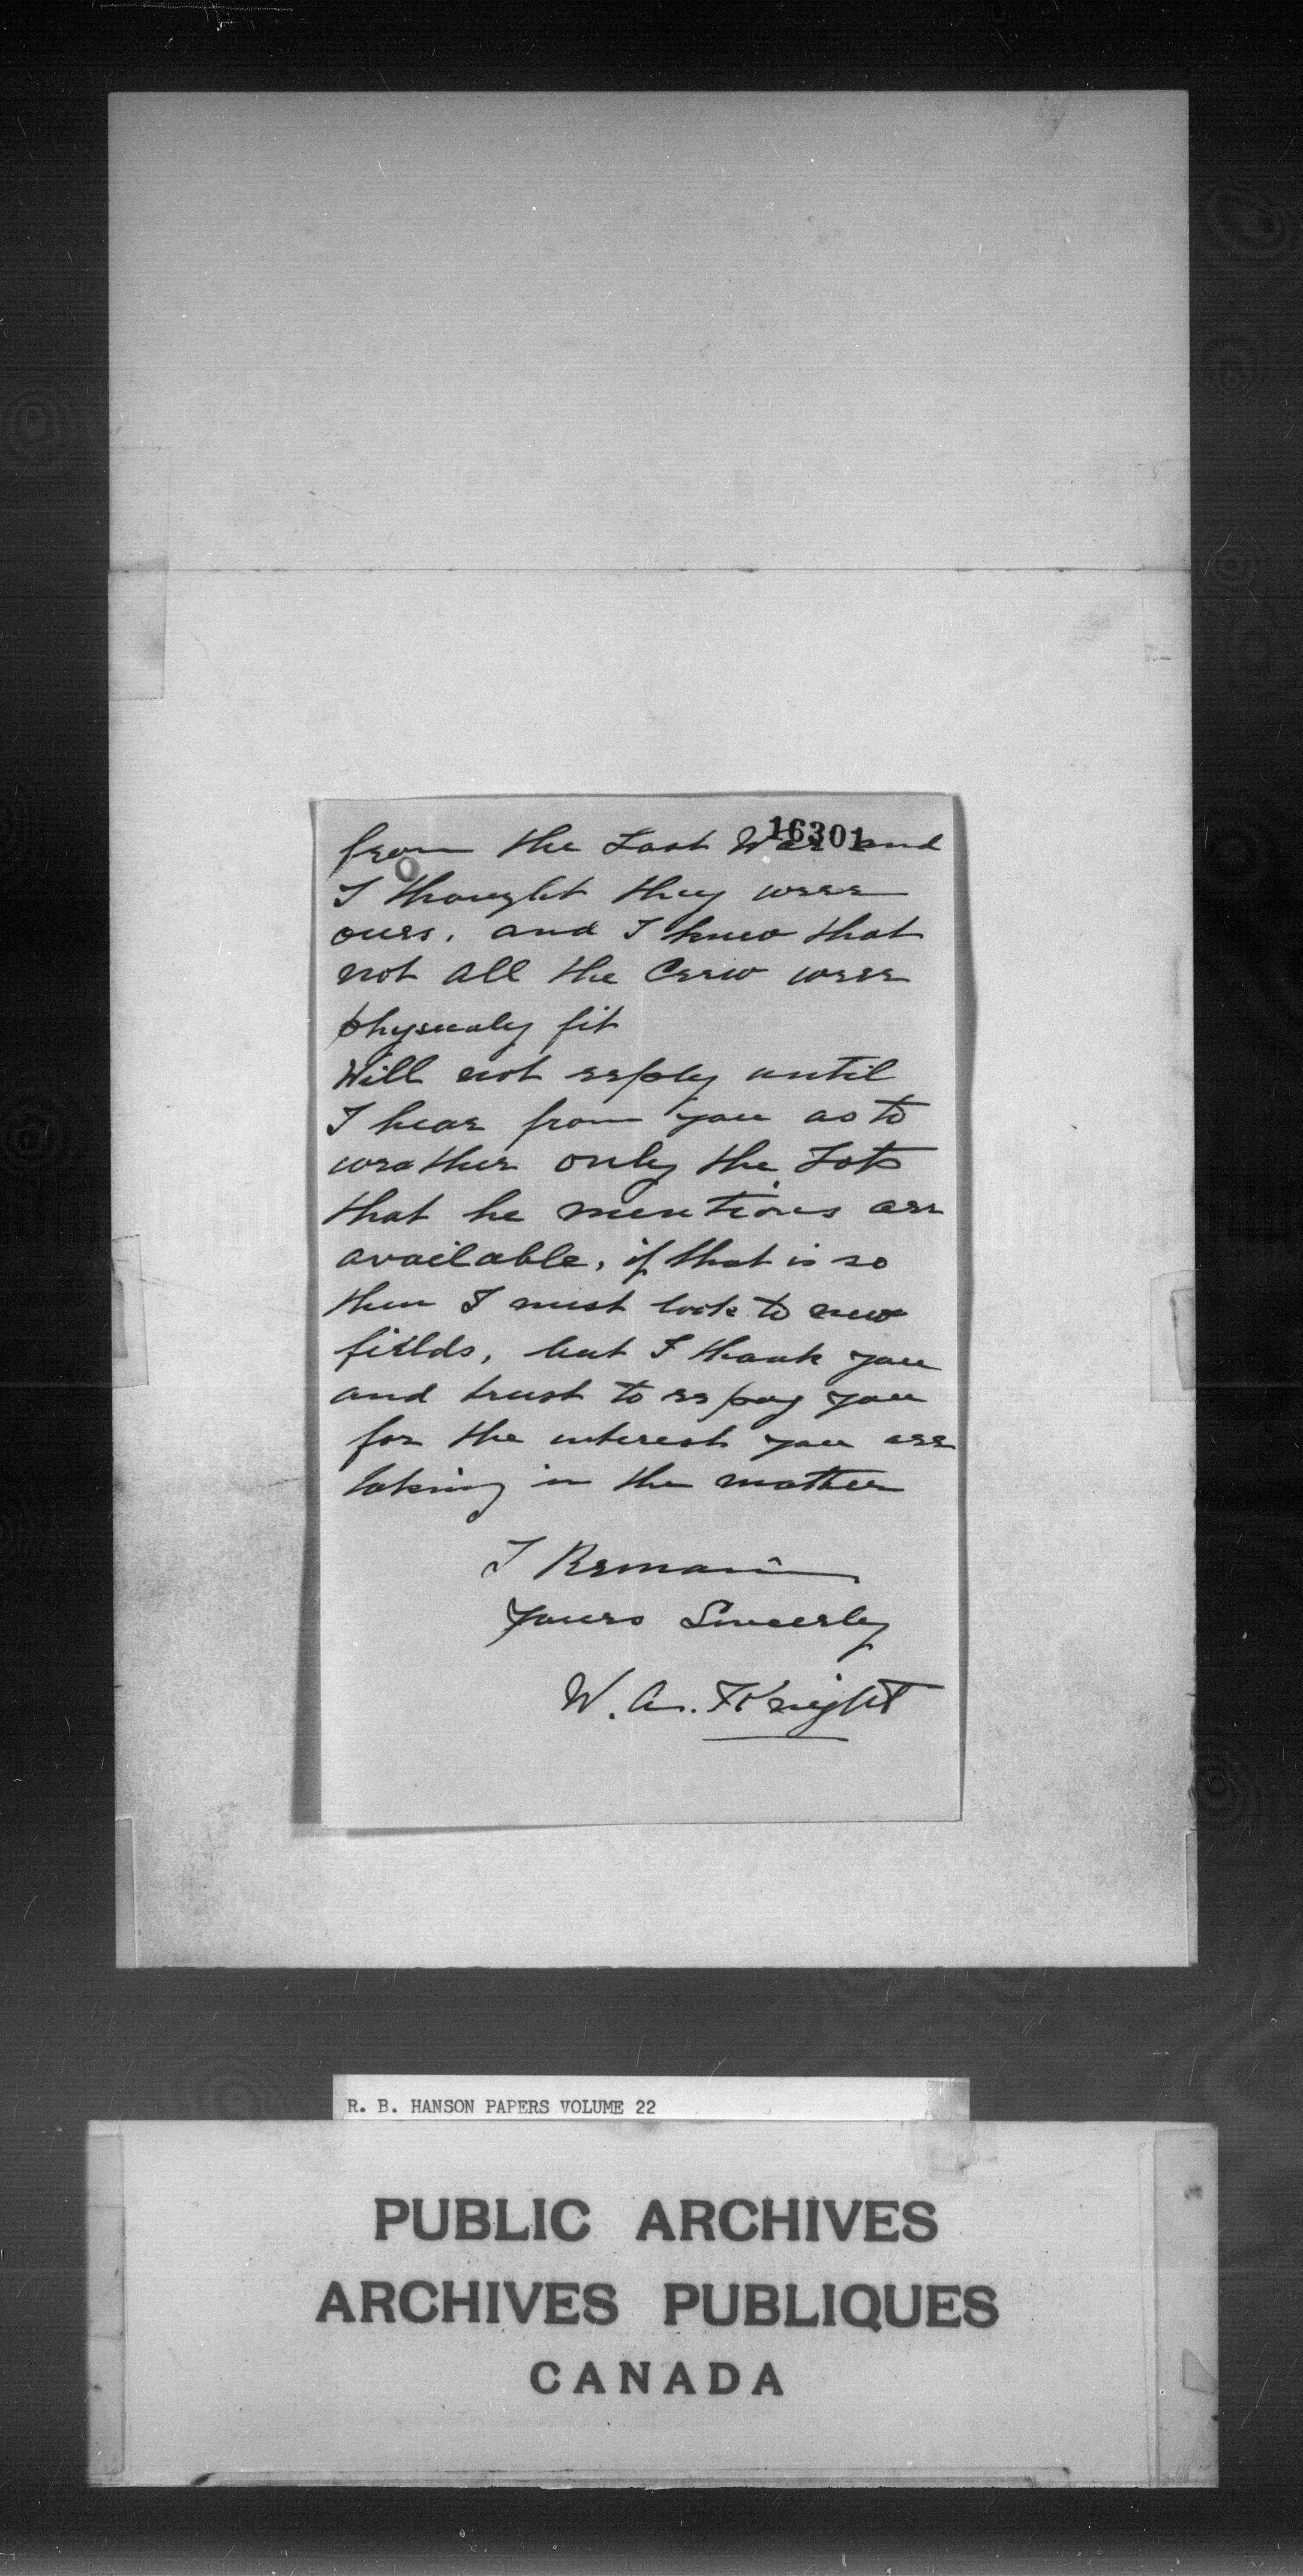 16301
from the Last War and
I thought they were
ours. and I knew that
not all the Crew were
physucaly fit
Will not reply until
I hear from you as to
weather only the Lots
that he mentions are
available, if that is so
then I must look to new
fields, but I thank you
and trust to repay you
for the interest you are
taking in the matter
I Remain
Yours Sincerly
W. A. Knight
R. B. HANSON PAPERS VOLUME 22
PUBLIC ARCHIVES
ARCHIVES PUBLIQUES
CANADA